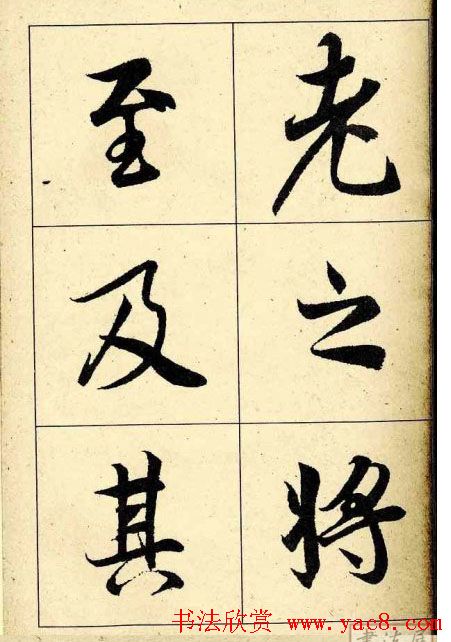 老之将
至及其
书法欣赏 www.yac8.com